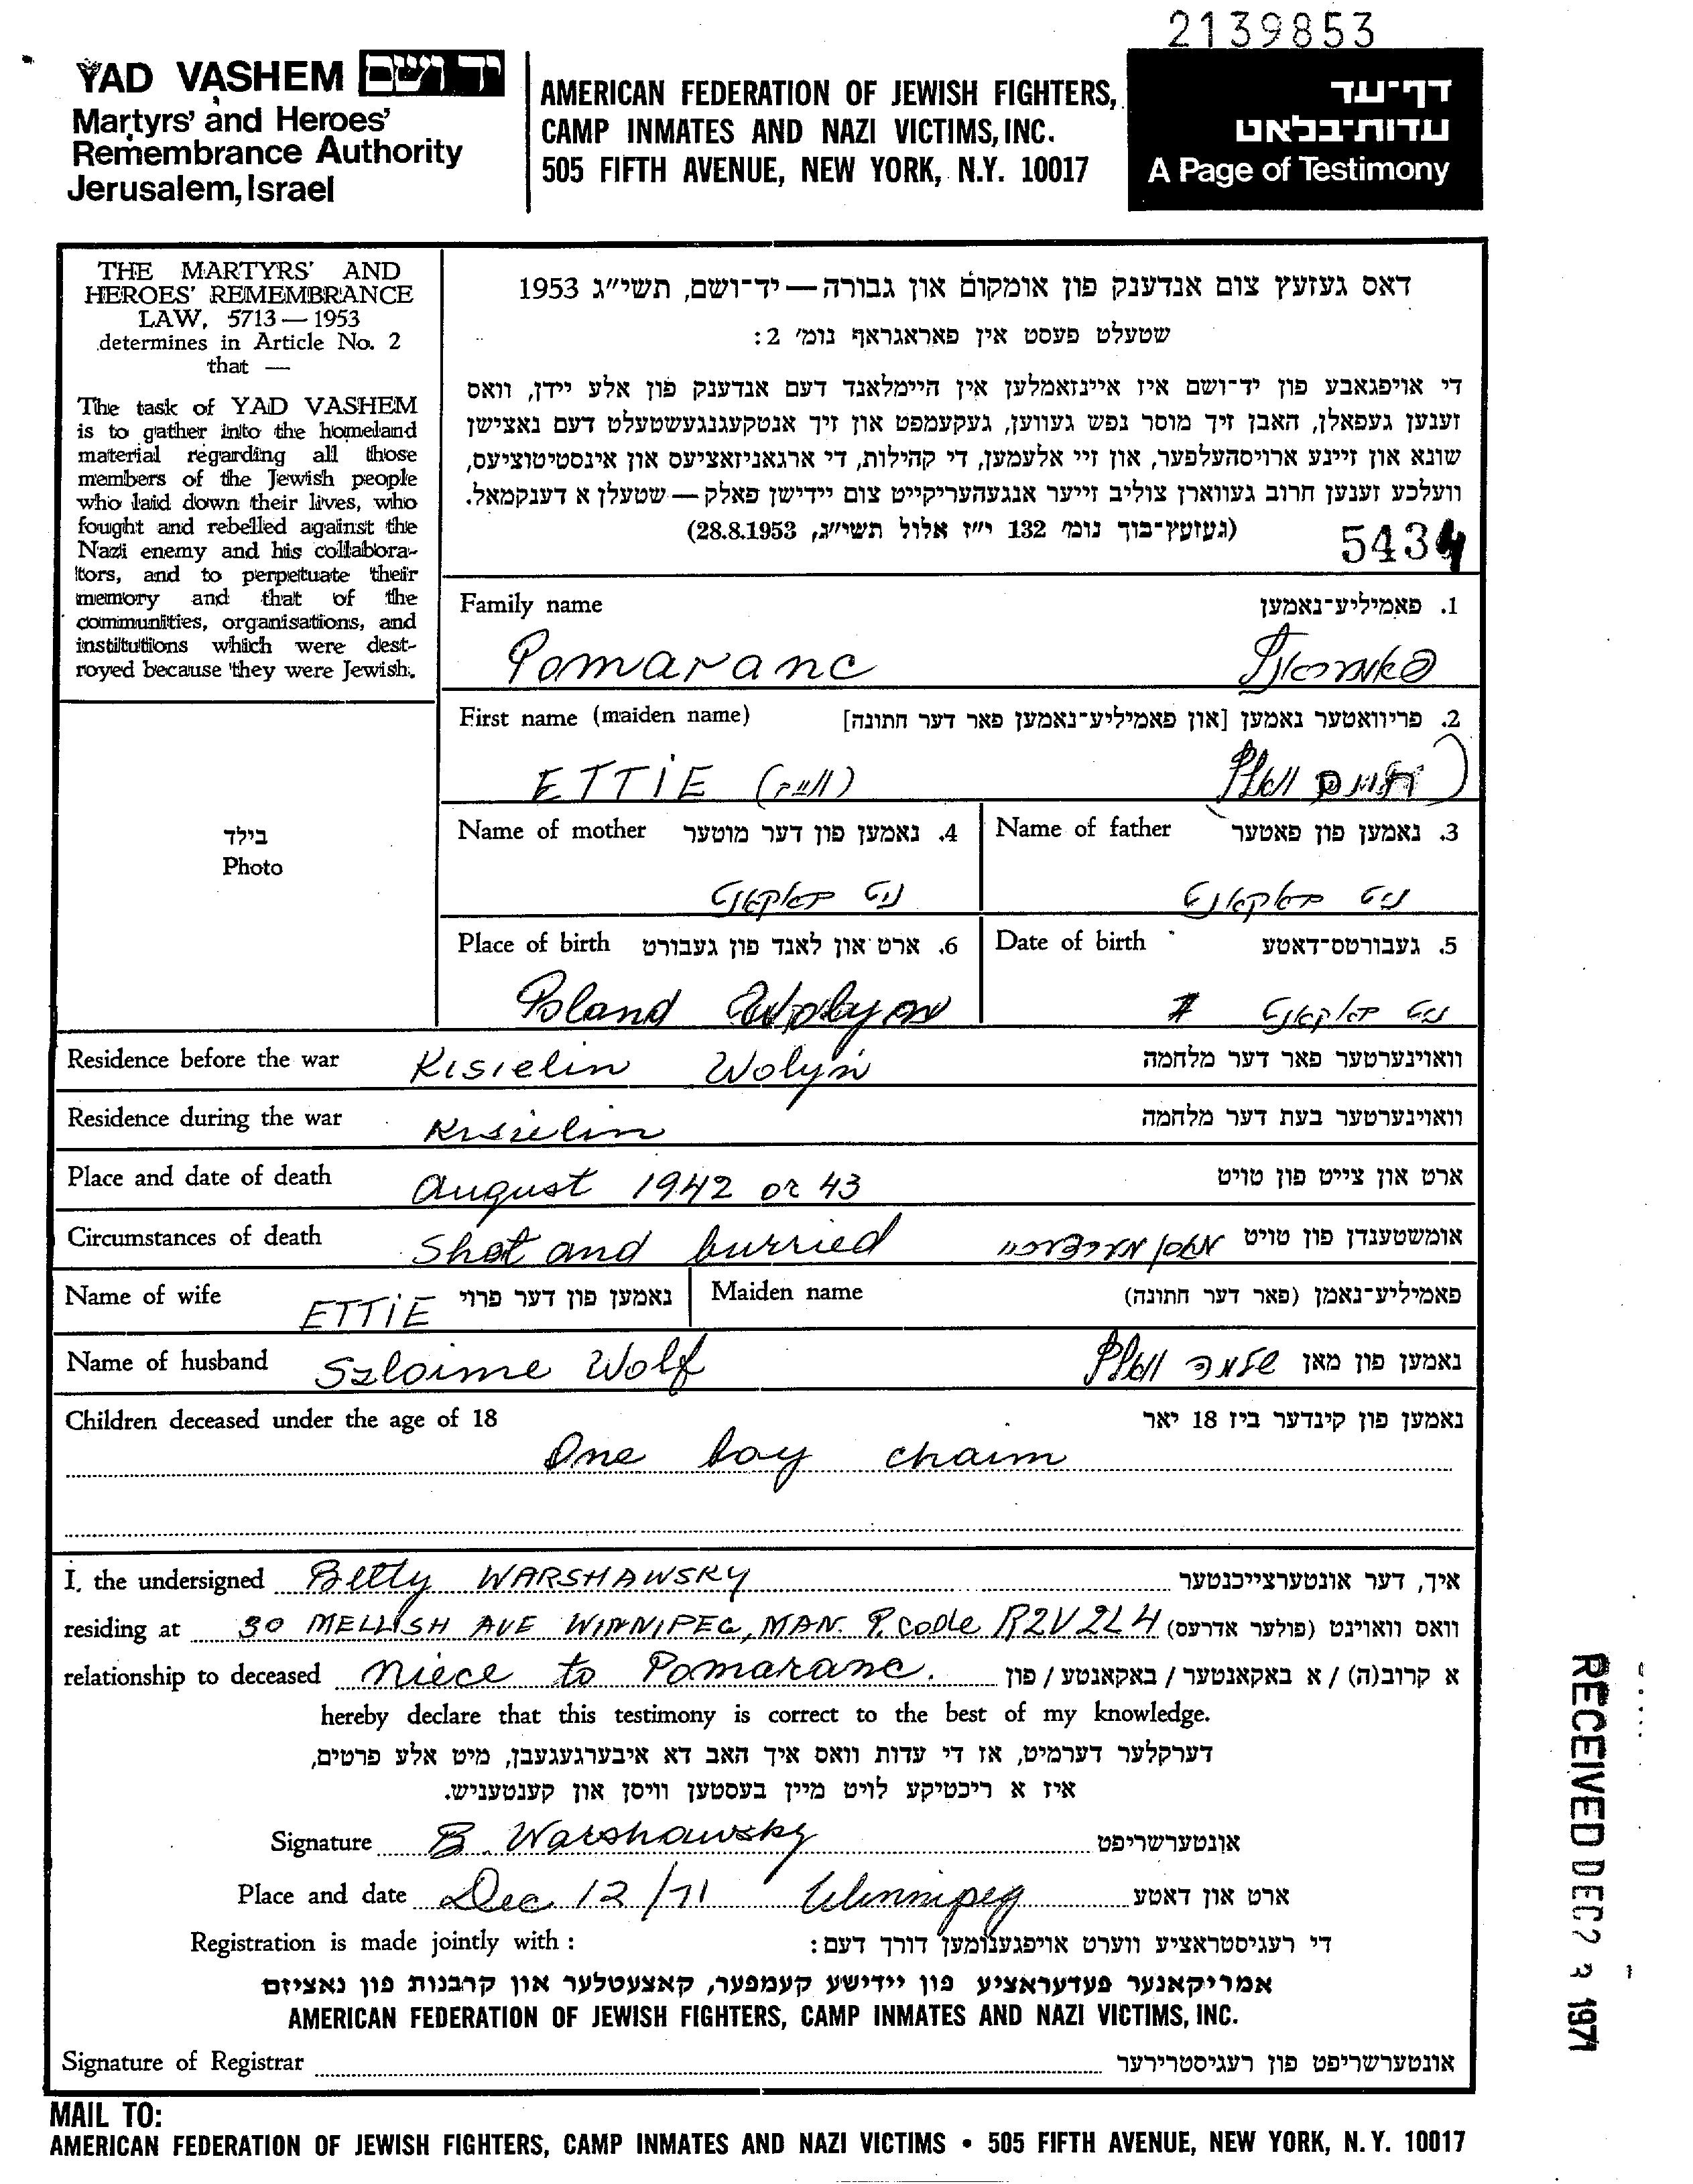 2139853
YAD VASHEM יד ושם
Martyrs' and Heroes'
Remembrance Authority
Jerusalem, Israel
AMERICAN FEDERATION OF JEWISH FIGHTERS,
CAMP INMATES AND NAZI VICTIMS, INC.
505 FIFTH AVENUE, NEW YORK, N.Y. 10017
דף־עד
עדות־בלאט
A Page of Testimony
THE MARTYRS' AND
HEROES' REMEMBRANCE
LAW, 5713 — 1953
determines in Article No. 2
that —
The task of YAD VASHEM
is to gather into the homeland
material regarding all those
members of the Jewish people
who laid down their lives, who
fought and rebelled against the
Nazi enemy and his collabora-
tors, and to perpetuate their
memory and that of the
communities, organisations, and
institutions which were dest-
royed because they were Jewish.
דאס געזעץ צום אנדענק פון אומקום און גבורה — יד־ושם, תשי״ג 1953
שטעלט פעסט אין פאראגראף נומ׳ 2:
די אויפגאבע פון יד־ושם איז איינזאמלען אין היימלאנד דעם אנדענק פון אלע יידן, וואס
זענען געפאלן, האבן זיך מוסר נפש געווען, געקעמפט און זיך אנטקעגנגעשטעלט דעם נאצישן
שונא און זיינע ארויסהעלפער, און זיי אלעמען, די קהילות, די ארגאניזאציעס און אינסטיטוציעס,
וועלכע זענען חרוב געווארן צוליב זייער אנגעהעריקייט צום יידישן פאלק — שטעלן א דענקמאל.
(געזעץ־בוך נומ׳ 132 י״ז אלול תשי״ג, 28.8.1953)
5434
Family name 1. פאמיליע־נאמען
Pomaranc פאמעראנץ
First name (maiden name) 2. פריוואטער נאמען [און פאמיליע־נאמען פאר דער חתונה]
ETTIE וואלף
Name of mother 4. נאמען פון דער מוטער Name of father 3. נאמען פון פאטער
ניט באקאנט ניט באקאנט
Place of birth 6. ארט און לאנד פון געבורט Date of birth 5. געבורטס־דאטע
Poland ניט באקאנט
Residence before the war Kisielin Wolyń וואוינערטער פאר דער מלחמה
Residence during the war Kisielin וואוינערטער בעת דער מלחמה
Place and date of death August 1942 or 43 ארט און צייט פון טויט
Circumstances of death Shot and burried אומשטענדן פון טויט
Name of wife ETTIE נאמען פון דער פרוי Maiden name פאמיליע־נאמן (פאר דער חתונה)
Name of husband Szloime Wolf שלמה וואלף נאמען פון מאן
Children deceased under the age of 18 נאמען פון קינדער ביז 18 יאר
One boy chaim
I, the undersigned Betty WARSHAWSKY איך, דער אונטערצייכנטער
residing at 30 MELLISH AVE WINNIPEG, MAN. P. code R2V2L4 וואס וואוינט (פולער אדרעס)
relationship to deceased niece to Pomaranc. א קרוב(ה) / א באקאנטער / באקאנטע / פון
hereby declare that this testimony is correct to the best of my knowledge.
דערקלער דערמיט, אז די עדות וואס איך האב דא איבערגעגעבן, מיט אלע פרטים,
איז א ריכטיקע לויט מיין בעסטען וויסן און קענטעניש.
Signature B. Warshawsky אונטערשריפט
Place and date Dec 12/71 Winnipeg ארט און דאטע
Registration is made jointly with: די רעגיסטראציע ווערט אויפגענומען דורך דעם:
אמריקאנער פעדעראציע פון יידישע קעמפער, קאצעטלער און קרבנות פון נאציזם
AMERICAN FEDERATION OF JEWISH FIGHTERS, CAMP INMATES AND NAZI VICTIMS, INC.
Signature of Registrar אונטערשריפט פון רעגיסטרירער
MAIL TO:
AMERICAN FEDERATION OF JEWISH FIGHTERS, CAMP INMATES AND NAZI VICTIMS • 505 FIFTH AVENUE, NEW YORK, N.Y. 10017
בילד
Photo
RECEIVED DEC 1971